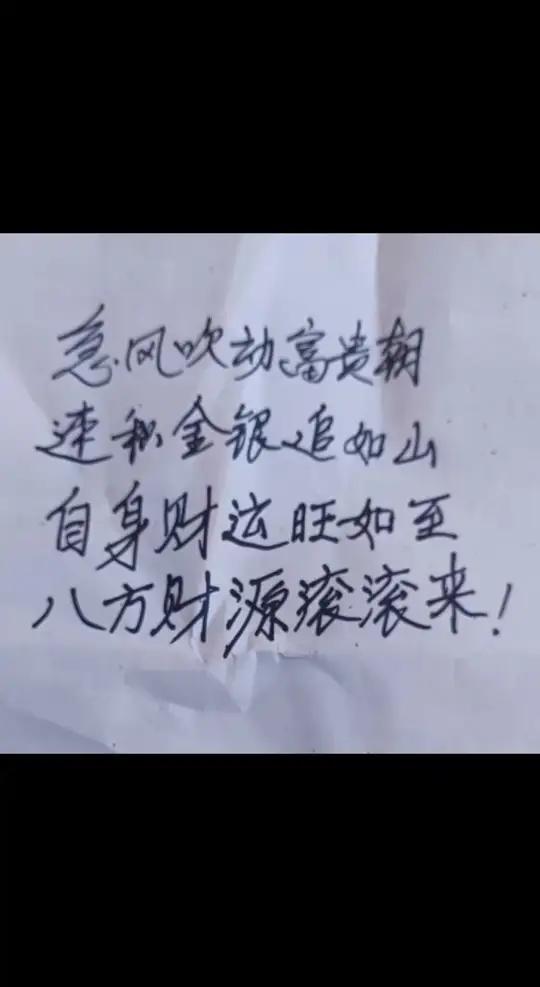 急风吹动富贵朝
速积金银追如山
自身财运旺如至
八方财源滚滚来！